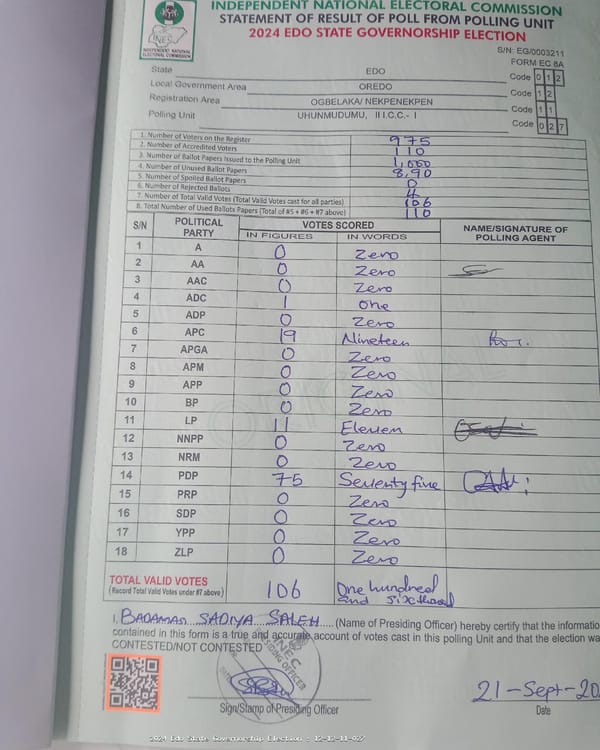 INDEPENDENT NATIONAL ELECTORAL COMMISSION
STATEMENT OF RESULT OF POLL FROM POLLING UNIT
2024 EDO STATE GOVERNORSHIP ELECTION
INEC
INDEPENDENT NATIONAL ELECTORAL COMMISSION
S/N: EG/0003211
FORM EC 8A
State EDO Code 0 1 2
Local Government Area OREDO Code 1 2
Registration Area OGBELAKA/ NEKPENEKPEN Code 1 1
Polling Unit UHUNMUDUMU, II I.C.C.- I Code 0 2 7
1. Number of Voters on the Register 975
2. Number of Accredited Voters 110
3. Number of Ballot Papers Issued to the Polling Unit 1,000
4. Number of Unused Ballot Papers 8,90
5. Number of Spoiled Ballot Papers 0
6. Number of Rejected Ballots 4
7. Number of Total Valid Votes (Total Valid Votes cast for all parties) 106
8. Total Number of Used Ballots Papers (Total of #5 + #6 + #7 above) 110
S/N POLITICAL PARTY VOTES SCORED NAME/SIGNATURE OF POLLING AGENT
IN FIGURES IN WORDS
1 A 0 Zero
2 AA 0 Zero
3 AAC 0 Zero
4 ADC 1 one
5 ADP 0 Zero
6 APC 19 Nineteen
7 APGA 0 Zero
8 APM 0 Zero
9 APP 0 Zero
10 BP 0 Zero
11 LP 11 Eleven
12 NNPP 0 Zero
13 NRM 0 Zero
14 PDP 75 Seventy five
15 PRP 0 Zero
16 SDP 0 Zero
17 YPP 0 Zero
18 ZLP 0 Zero
TOTAL VALID VOTES 106 One hundred
(Record Total Valid Votes under #7 above) and six
I, BADAMASI SADIYA SALEH (Name of Presiding Officer) hereby certify that the informatio
contained in this form is a true and accurate account of votes cast in this polling Unit and that the election wa
CONTESTED/NOT CONTESTED
INEC
PRESIDING OFFICER
21-Sept-20
Sign/Stamp of Presiding Officer Date
2024 Edo State Governorship Election : 12-12-11-027